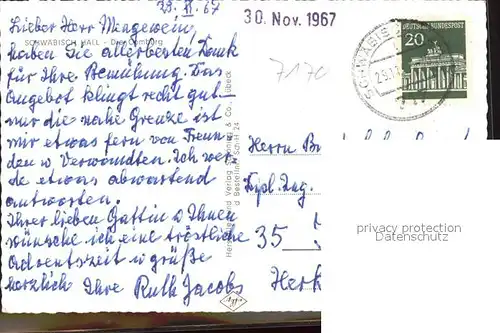 29. XI. 67
Lieber Herr Mingewein,
haben Sie allerbesten Dank
für Ihre Bemühung. Das
Angebot klingt recht gut
nur die nahe Grenze ist
mir etwas fern von Freun
den u Verwandten. Ich wer
de etwas abwartend
antworten.
Ihrer lieben Gattin u Ihnen
wünsche ich eine tröstliche
Adventszeit u grüße
herzlich Ihre Ruth Jacobs
SCHWÄBISCH HALL - Die Comburg
30. Nov. 1967
7170
SCHWÄBIS
DEUTSCHE BUNDESPOST
20
Herrn
Dipl. Ing.
35
privacy protection
Datenschutz